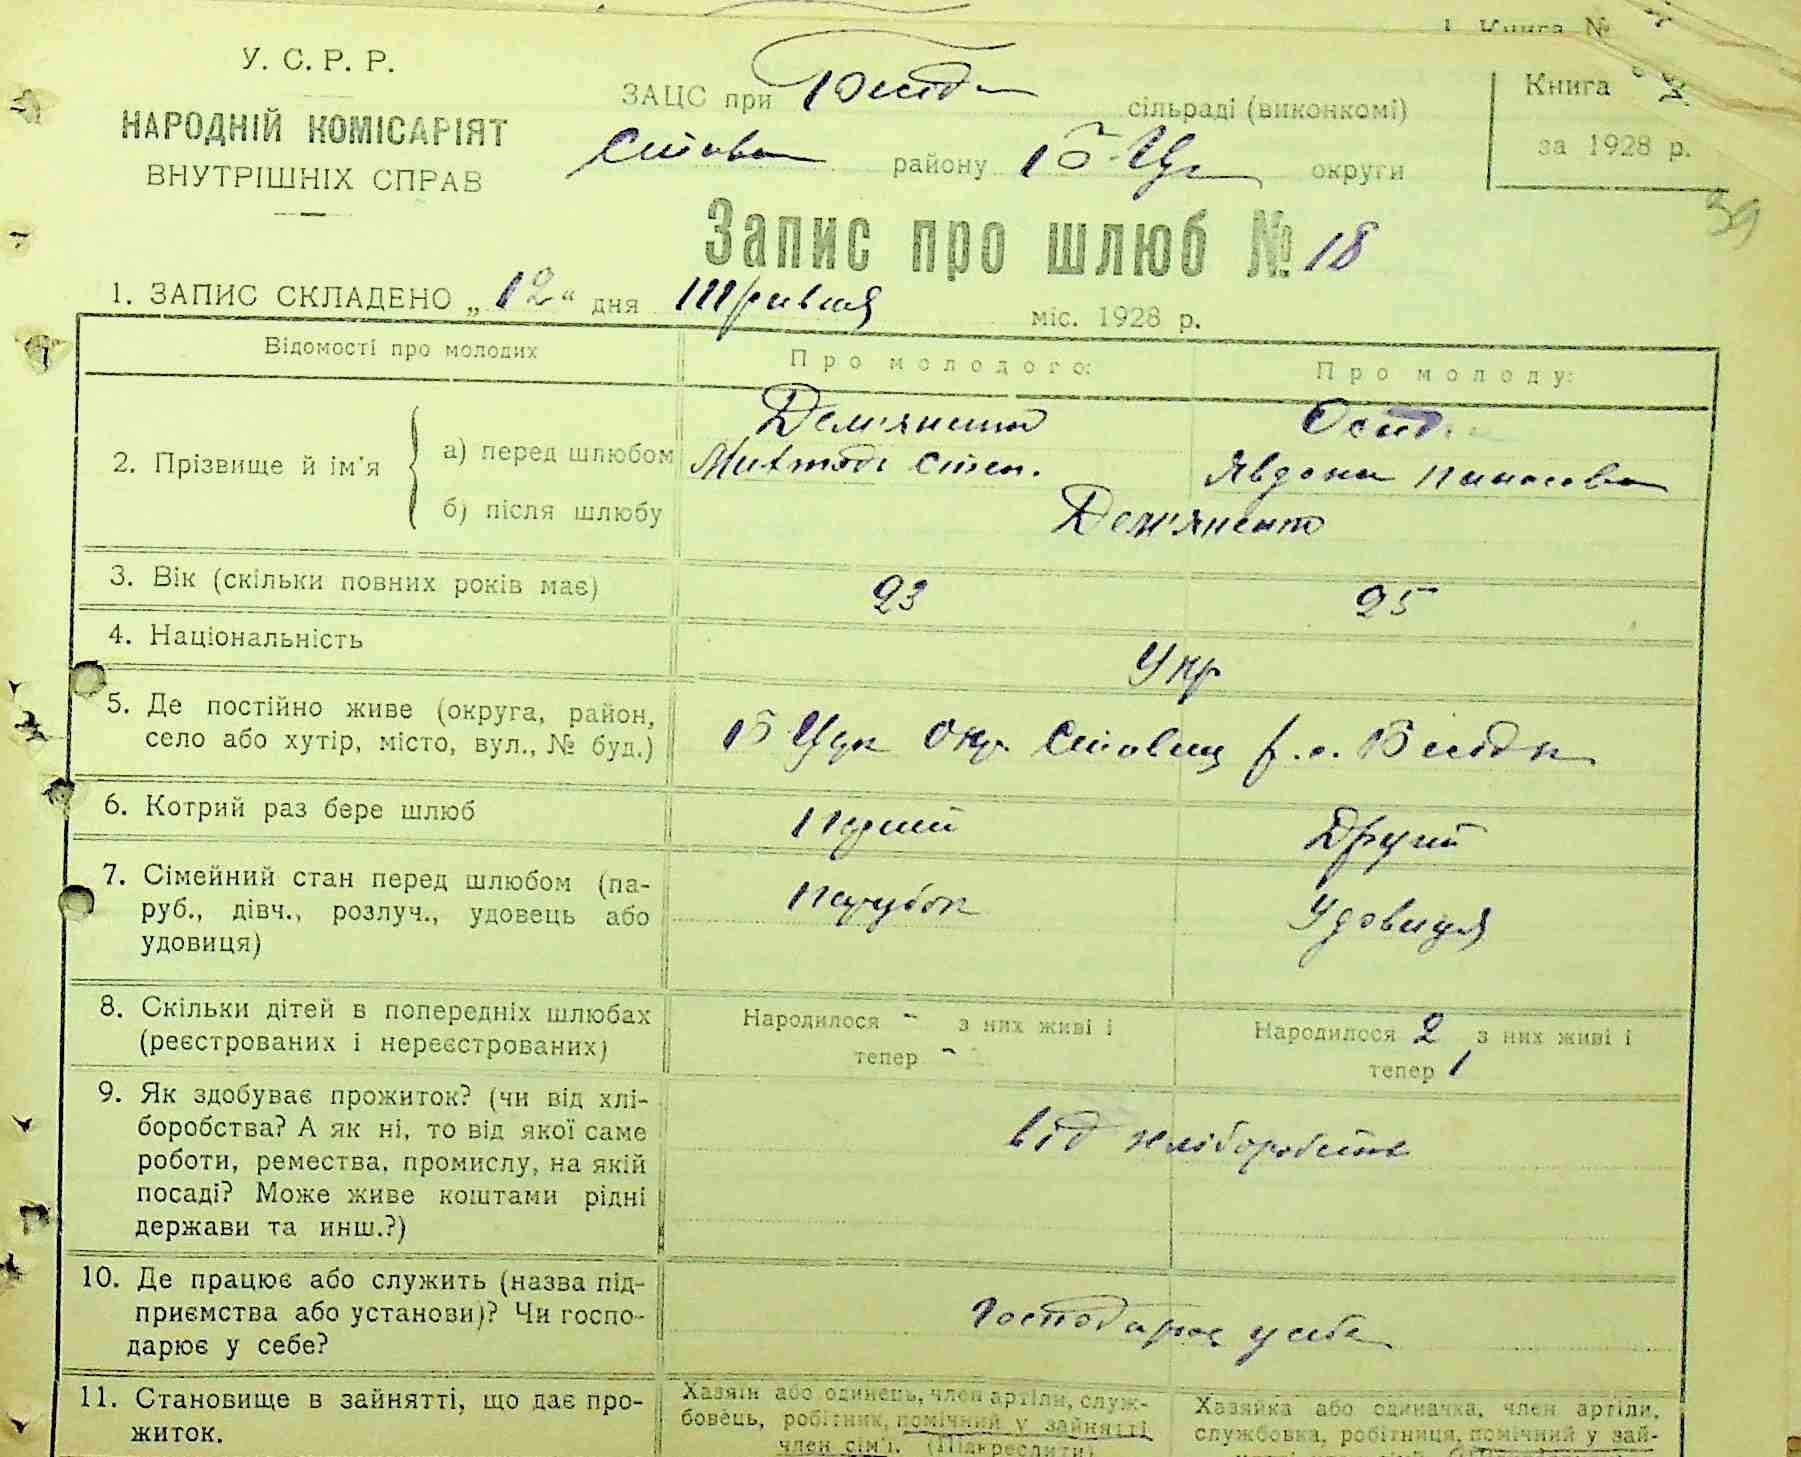 Книга №
У. С. Р. Р.
НАРОДНІЙ КОМІСАРІЯТ
ВНУТРІШНІХ СПРАВ
ЗАЦС при сільраді (виконкомі)
району округи
Книга
за 1928 р.
39
Запис про шлюб № 18
1. ЗАПИС СКЛАДЕНО „12“ дня Травня міс. 1928 р.
Відомості про молодих
Про молодого:
Про молоду:
2. Прізвище й ім'я
а) перед шлюбом
Дем'яненко
Явдоха Панасова
б) після шлюбу
Дем'яненко
3. Вік (скільки повних років має)
23
25
4. Національність
Укр
5. Де постійно живе (округа, район,
село або хутір, місто, вул., № буд.)
6. Котрий раз бере шлюб
Перший
Другий
7. Сімейний стан перед шлюбом (па-
руб., дівч., розлуч., удовець або
удовиця)
Парубок
Удовиця
8. Скільки дітей в попередніх шлюбах
(реєстрованих і нереєстрованих)
Народилося - з них живі і
тепер -
Народилося 2 з них живі і
тепер 1
9. Як здобуває прожиток? (чи від хлі-
боробства? А як ні, то від якої саме
роботи, ремества, промислу, на якій
посаді? Може живе коштами рідні
держави та инш.?)
від хліборобства
10. Де працює або служить (назва під-
приємства або установи)? Чи госпо-
дарює у себе?
Господарює у себе
11. Становище в зайнятті, що дає про-
житок.
Хазяїн або одинець, член артіли, служ-
бовець, робітник, помічний у зайнятті
член сім'ї. (Підкреслити)
Хазяйка або одиначка, член артіли,
службовка, робітниця, помічний у зай-